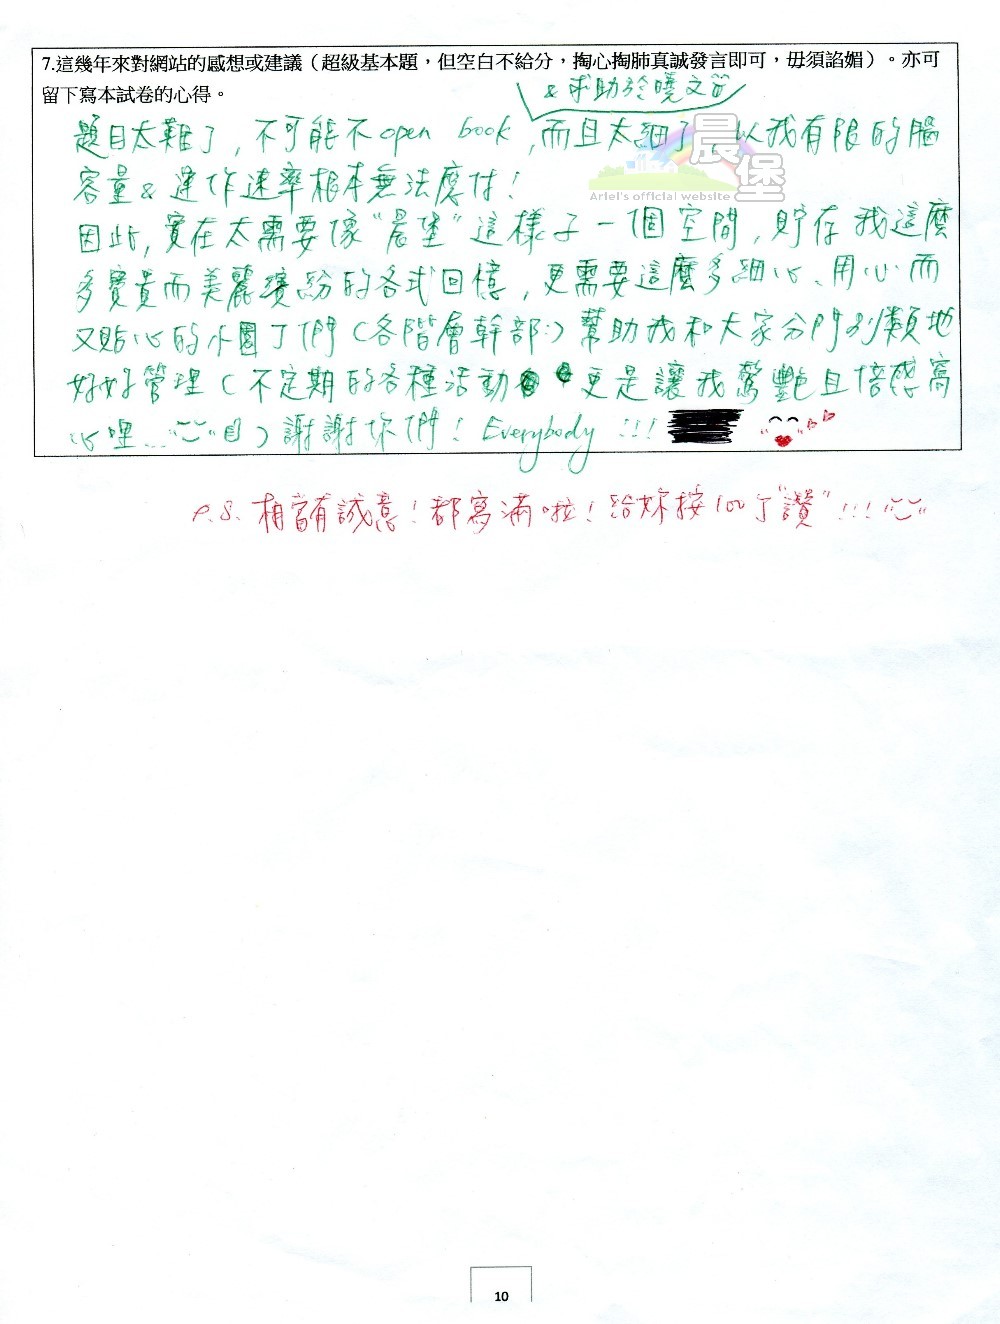 7.這幾年來對網站的感想或建議（超級基本題，但空白不給分，掏心掏肺真誠發言即可，毋須諂媚）。亦可
留下寫本試卷的心得。
& 求助於曉文
題目太難了, 不可能不open book, 而且太細了 以我有限的腦
晨堡
Ariel's official website
容量& 運作速率根本無法應付!
因此, 實在太需要像"晨堡"這樣子一個空間, 貯存我這麼
多寶貴而美麗繽紛的各式回憶, 更需要這麼多細心、用心而
又貼心的小園丁們(各階層幹部:)幫助我和大家分門別類地
好好管理(不定期的各種活動 更是讓我驚艷且倍感窩
心哩... )謝謝你們! Everybody!!!
P.S. 相當有誠意! 都寫滿啦! 給妳按100了"讚"!!!
10